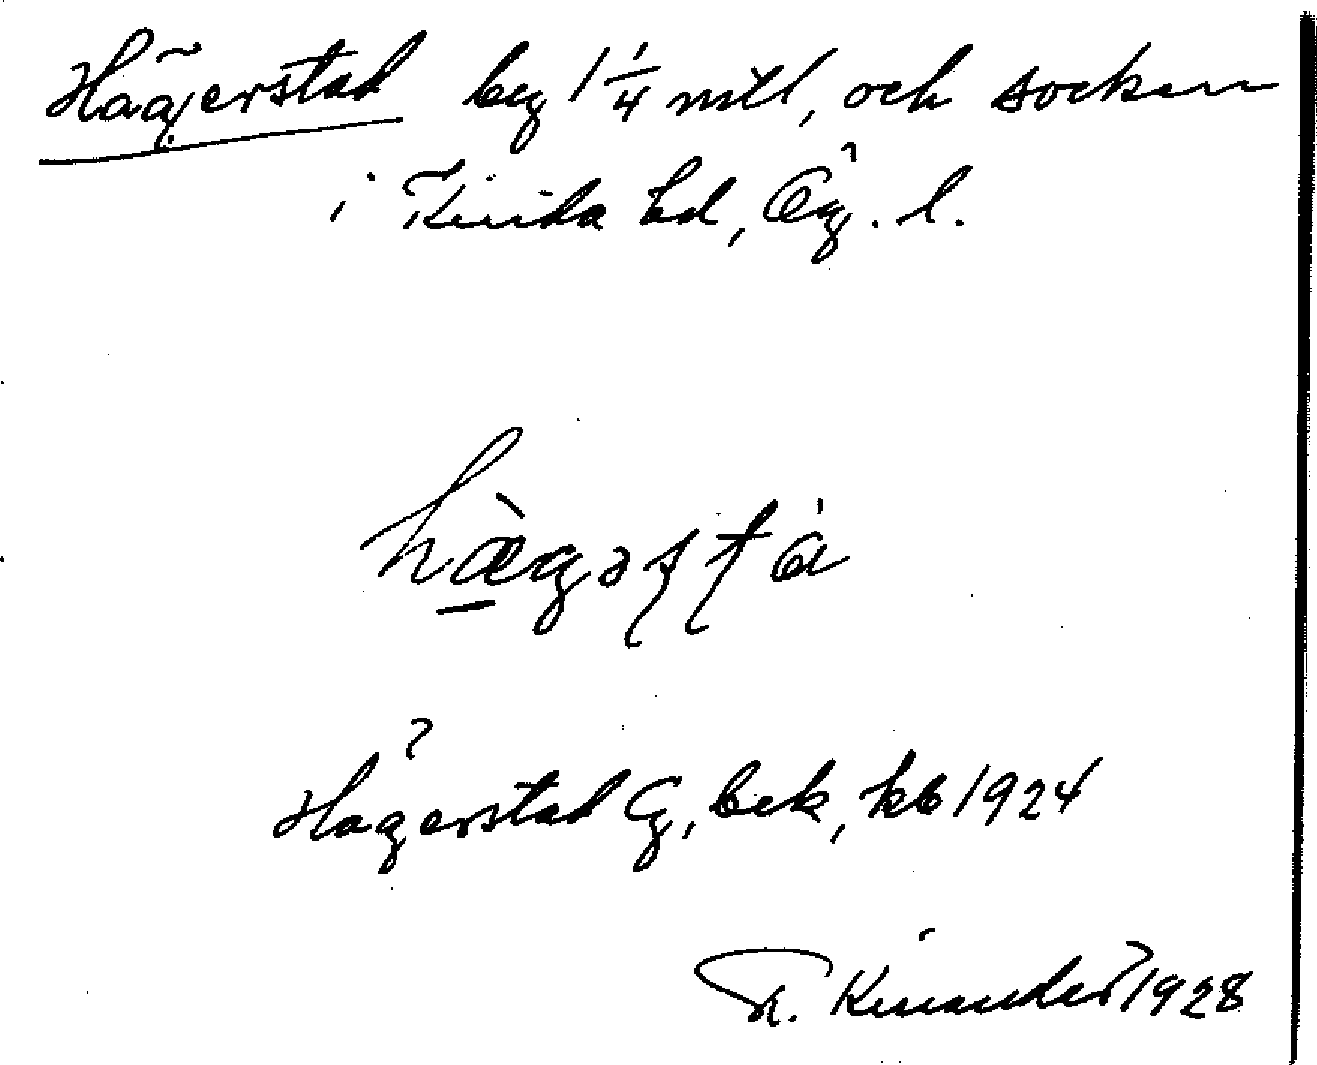 Hägerstad by 1 1/4 mtl, och socken
i Kinda hd, Ög. l.
hæ̀gəsta
Hägerstad Cg, bek, kb 1924
R. Kinander 1928